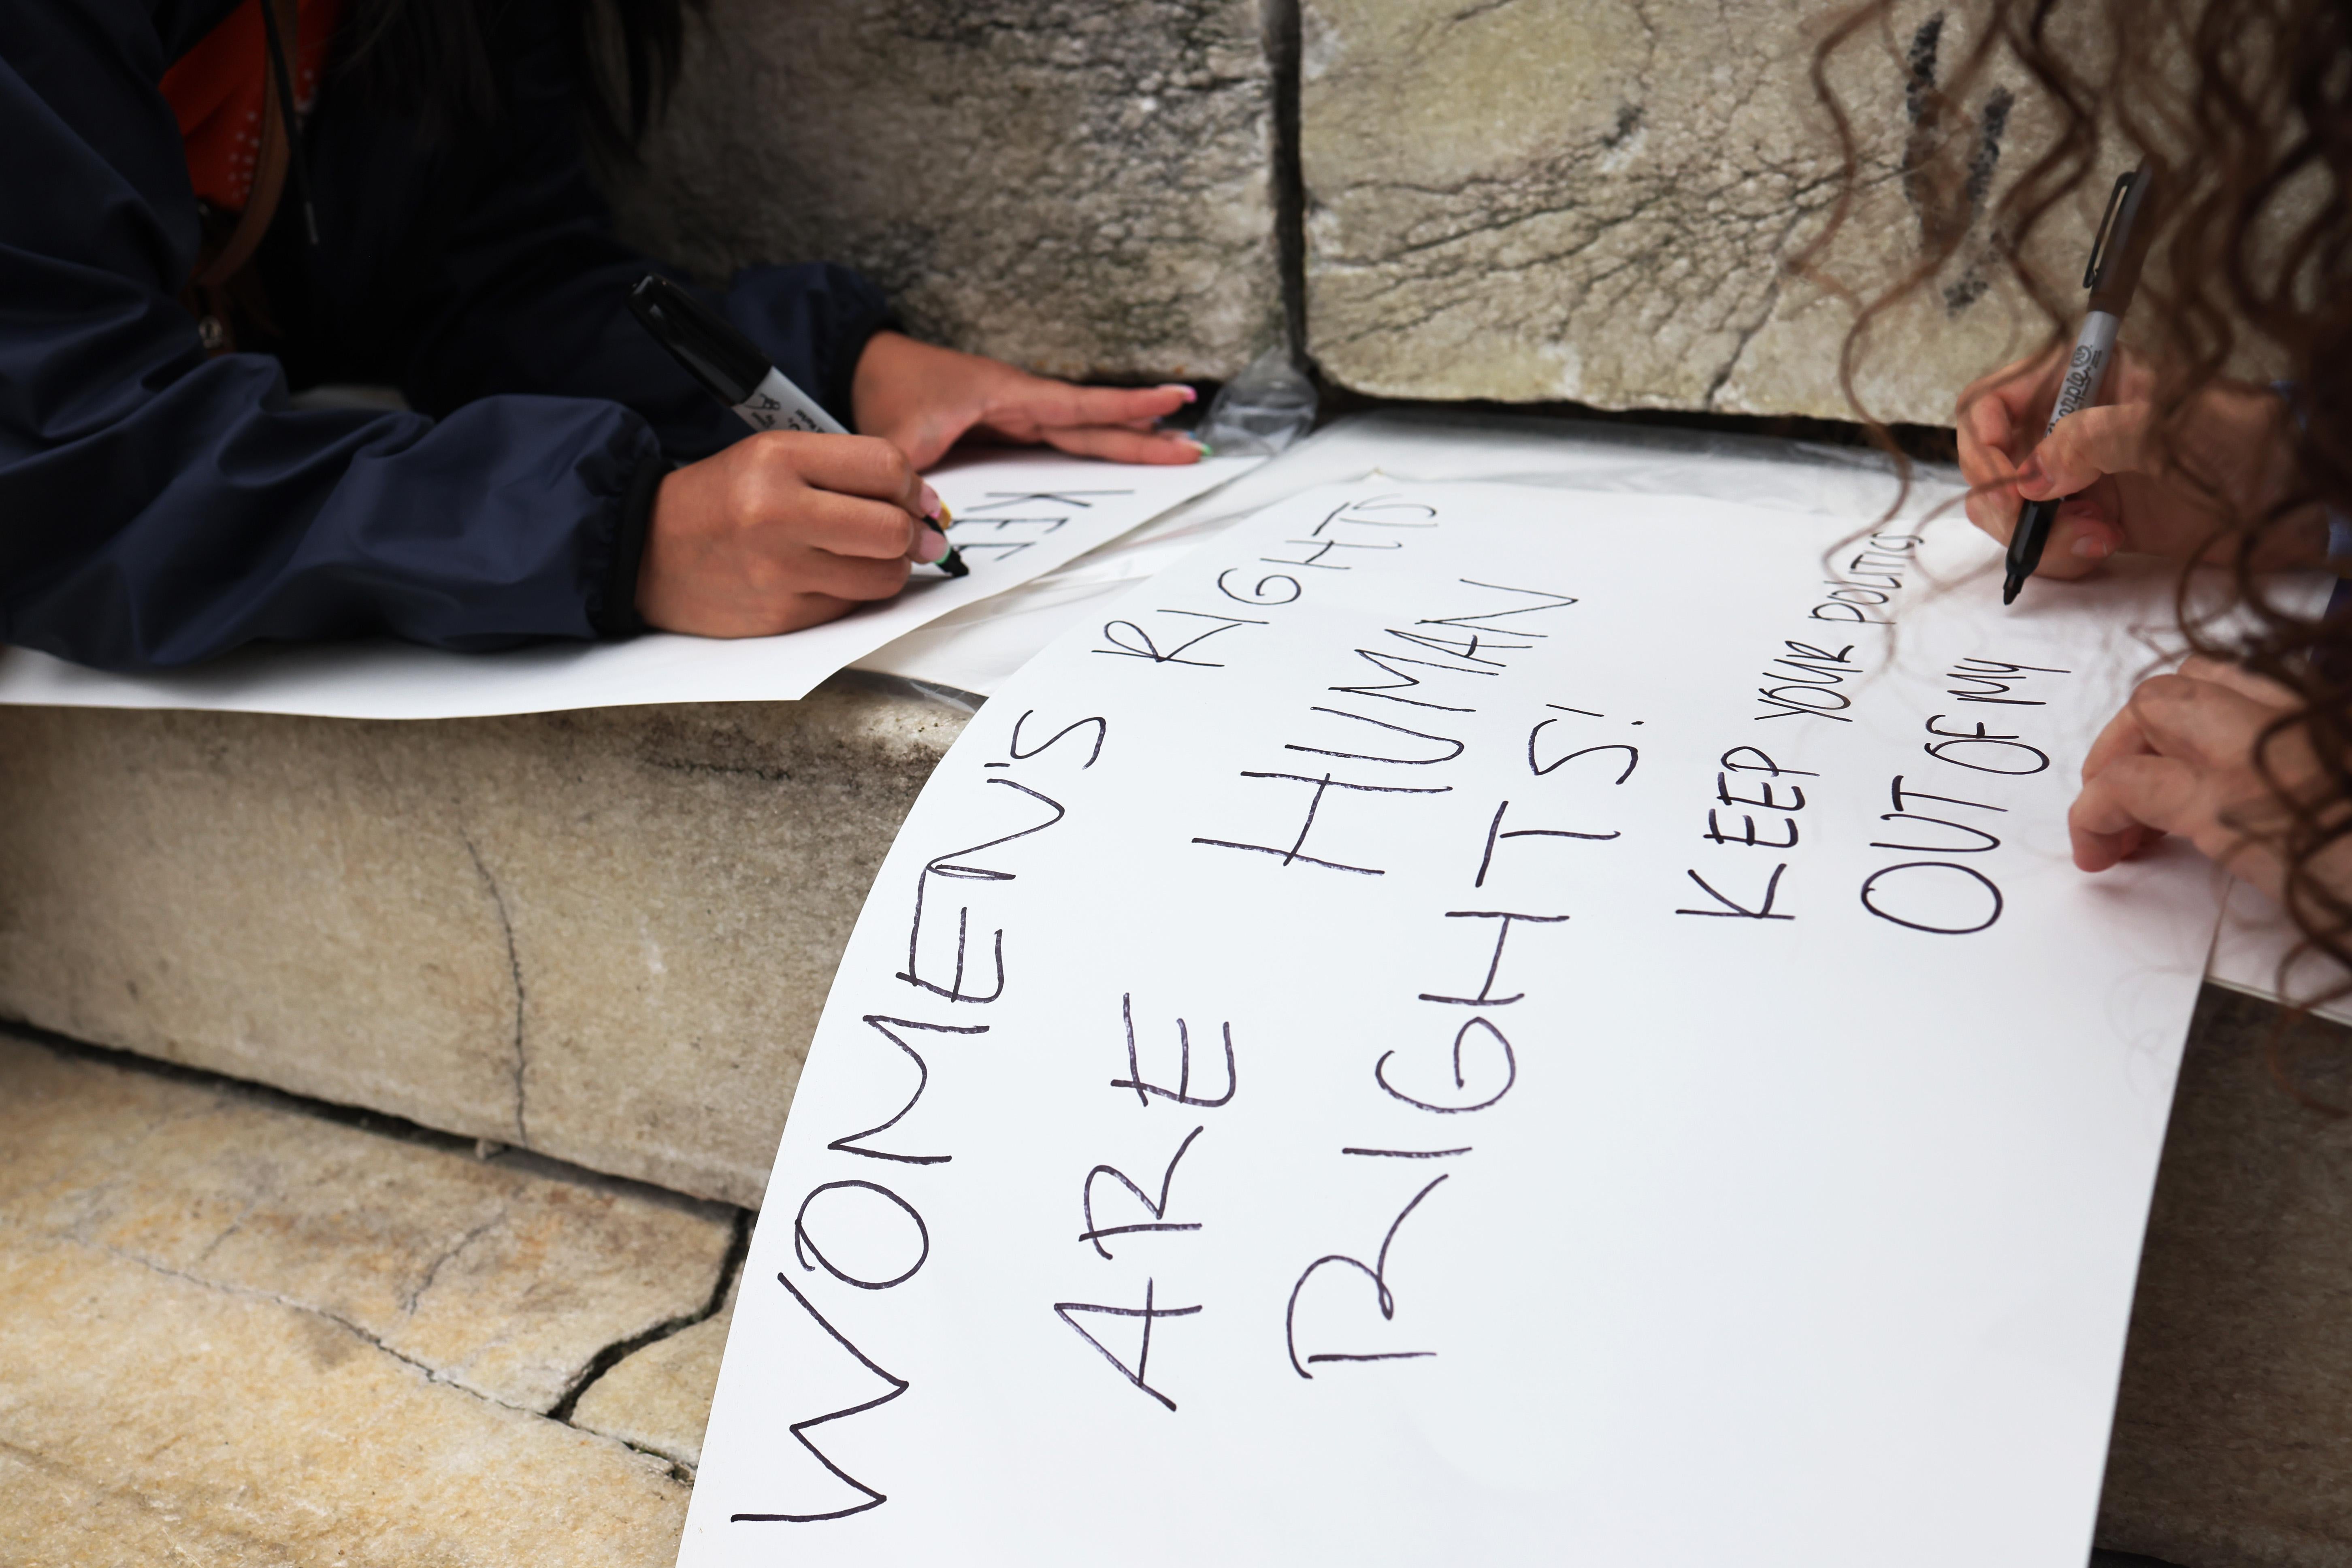 WOMEN'S RIGHTS
ARE HUMAN
RIGHTS!
KEEP YOUR POLITICS
OUT OF MY
KEE
Sharpie